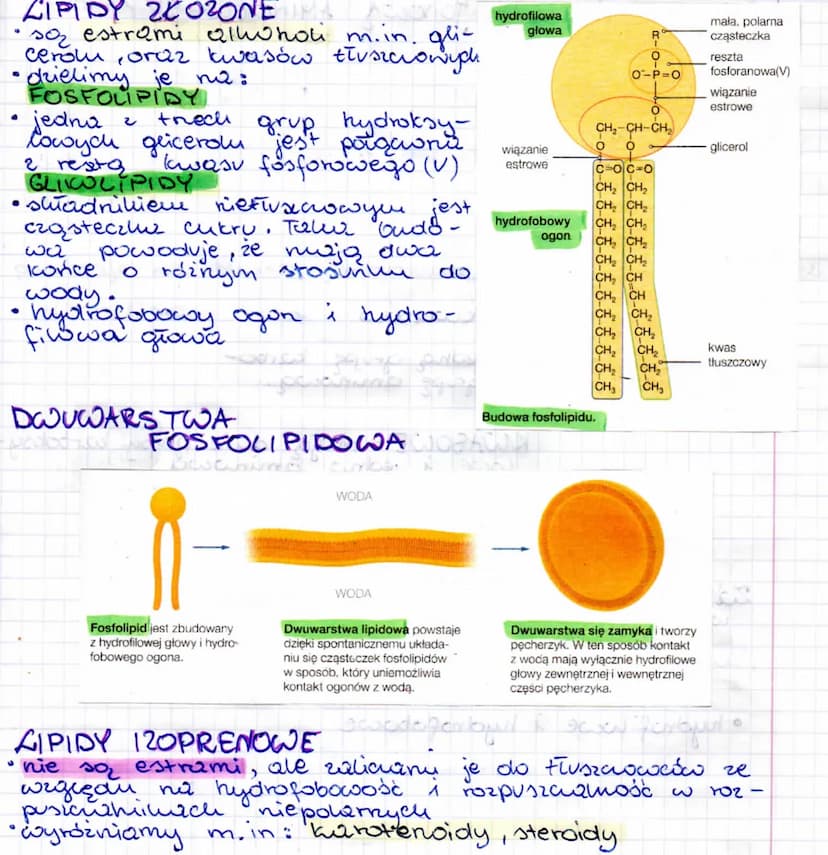 LIPIDY ZŁOŻONE
• są estrami alkoholi m.in. gli-
cerolu, oraz kwasów tłuszczowych
• dzielimy je na:
FOSFOLIPIDY
• jedna z trzech grup hydroksy-
lowych glicerolu jest połączona
z resztą kwasu fosforowego (V)
GLIKOLIPIDY
• składnikiem nietłuszczowym jest
cząsteczka cukru. Taka budo-
wa powoduje, że mają dwa
końce o różnym stosunku do
wody.
• hydrofobowy ogon i hydro-
filowa głowa
hydrofilowa
głowa
mała, polarna
cząsteczka
reszta
fosforanowa(V)
wiązanie
estrowe
glicerol
wiązanie
estrowe
hydrofobowy
ogon
kwas
tłuszczowy
R
O
O⁻–P=O
O
CH₂–CH–CH₂
O O
C=O C=O
CH₂ CH₂
CH₂ CH₂
CH₂ CH₂
CH₂ CH₂
CH₂ CH₂
CH₂ CH
CH₂ CH
CH₂ CH₂
CH₂ CH₂
CH₂ CH₂
CH₂ CH₂
CH₃ CH₃
Budowa fosfolipidu.
DWUWARSTWA
FOSFOLIPIDOWA
WODA
WODA
Fosfolipid jest zbudowany
z hydrofilowej głowy i hydro-
fobowego ogona.
Dwuwarstwa lipidowa powstaje
dzięki spontanicznemu układa-
niu się cząsteczek fosfolipidów
w sposób, który uniemożliwia
kontakt ogonów z wodą.
Dwuwarstwa się zamyka i tworzy
pęcherzyk. W ten sposób kontakt
z wodą mają wyłącznie hydrofilowe
głowy zewnętrznej i wewnętrznej
części pęcherzyka.
LIPIDY IZOPRENOWE
• nie są estrami, ale zaliczamy je do tłuszczowców ze
względu na hydrofobowość i rozpuszczalność w roz-
puszczalnikach niepolarnych
• wyróżniamy m.in: karotenoidy, steroidy